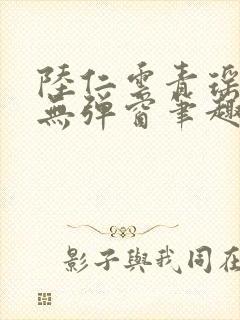 陸仁雲青瑤
無彈窗筆趣
影子與我同在